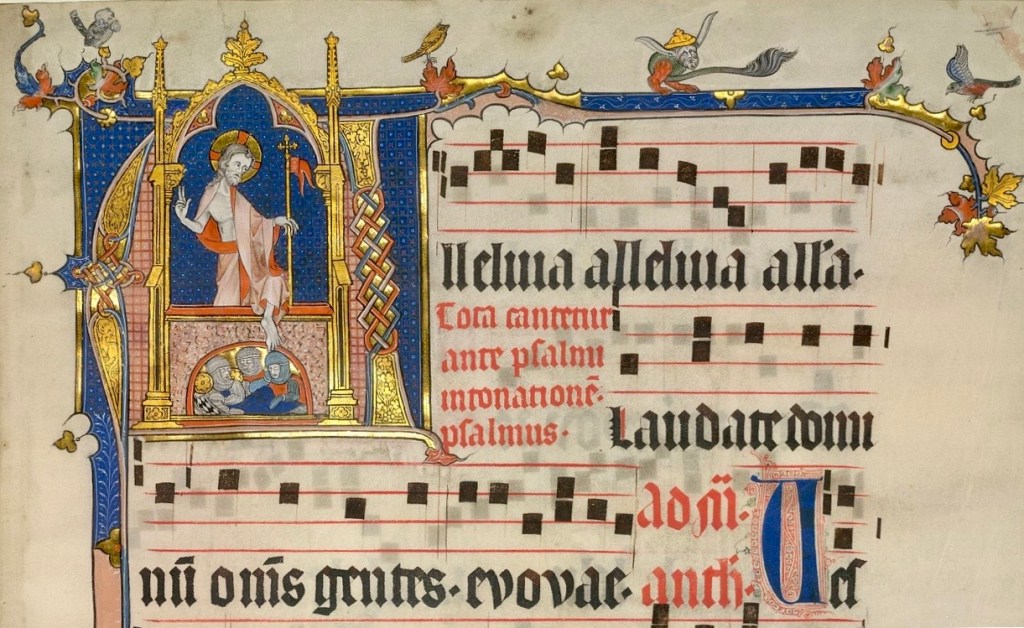 Alleluia alleluia all'a·
Tota cantetur
ante psalmi
intonationē·
psalmus· Laudate domi
Ad
nū om̄s gentes· evovae· anth̄· Ves